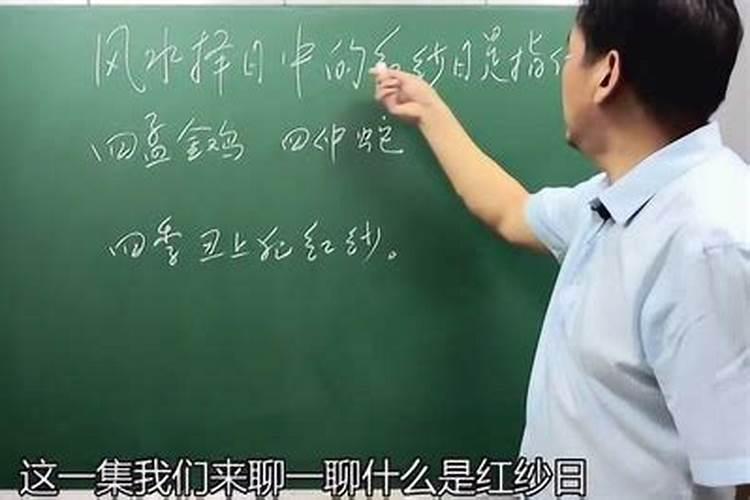 风水择日中的红纱日是指什
四孟金鸡 四仲蛇
四季丑上犯红纱。
这一集我们来聊一聊什么是红纱日